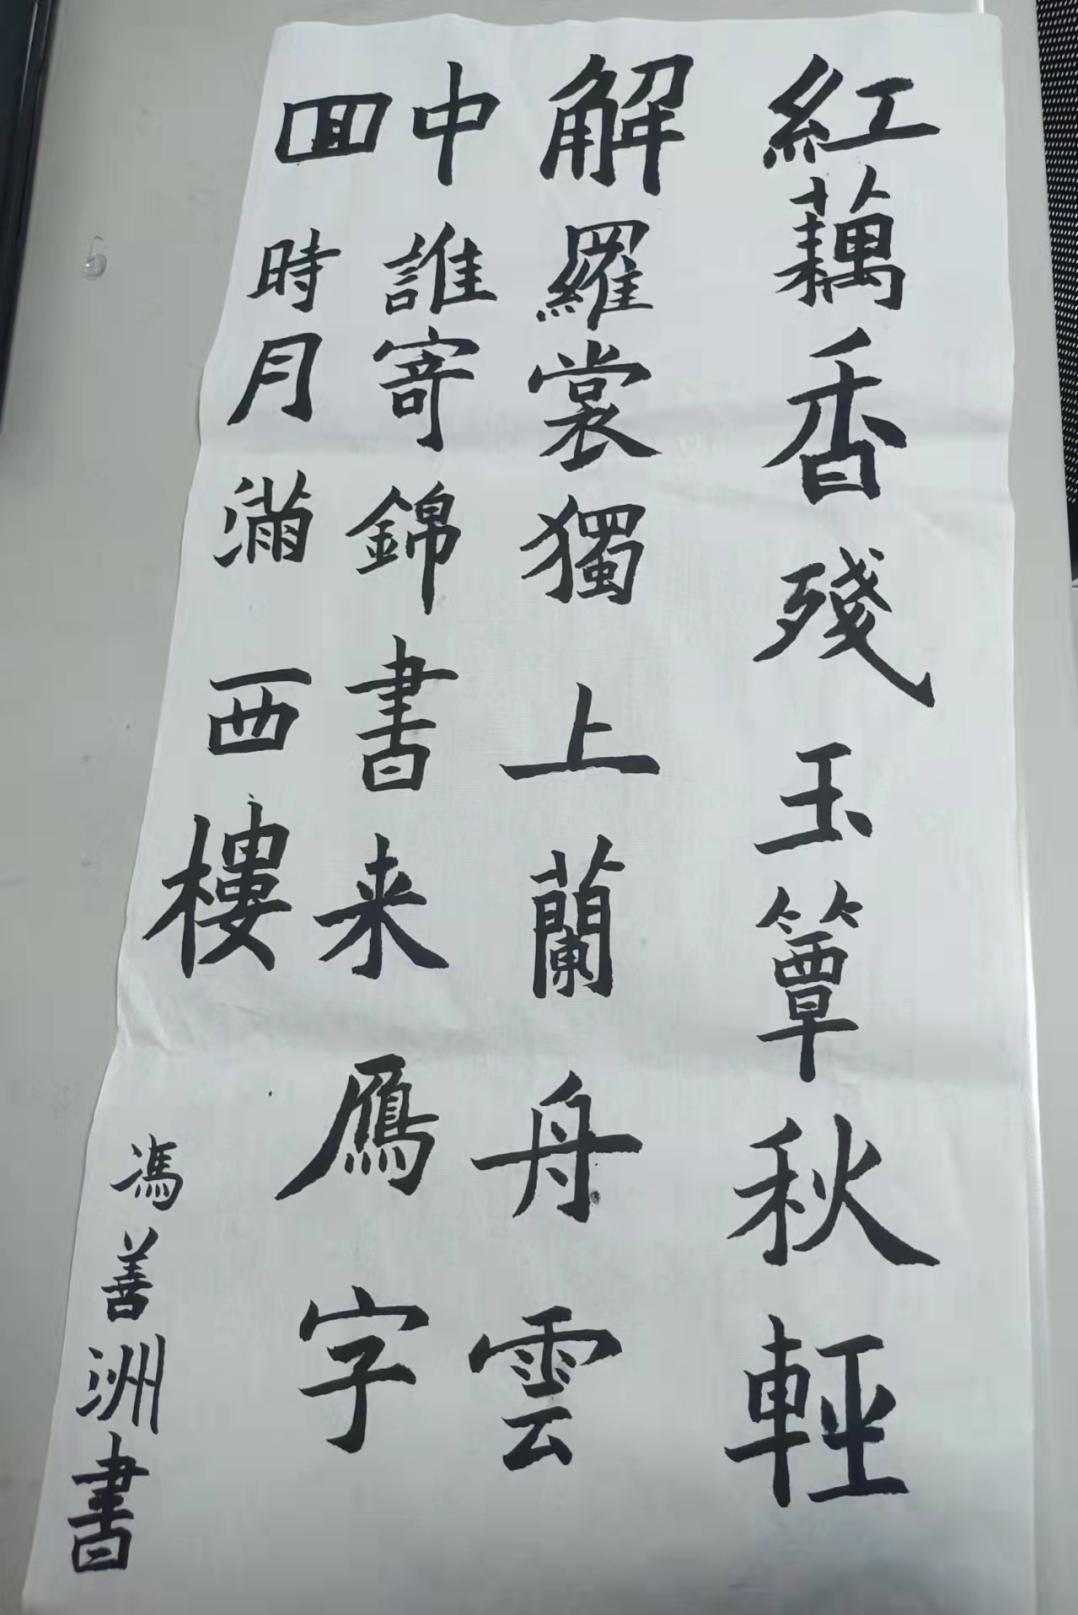 紅藕香殘玉簟秋輕
解羅裳獨上蘭舟雲
中誰寄錦書来鴈字
回時月滿西樓
馮善洲書